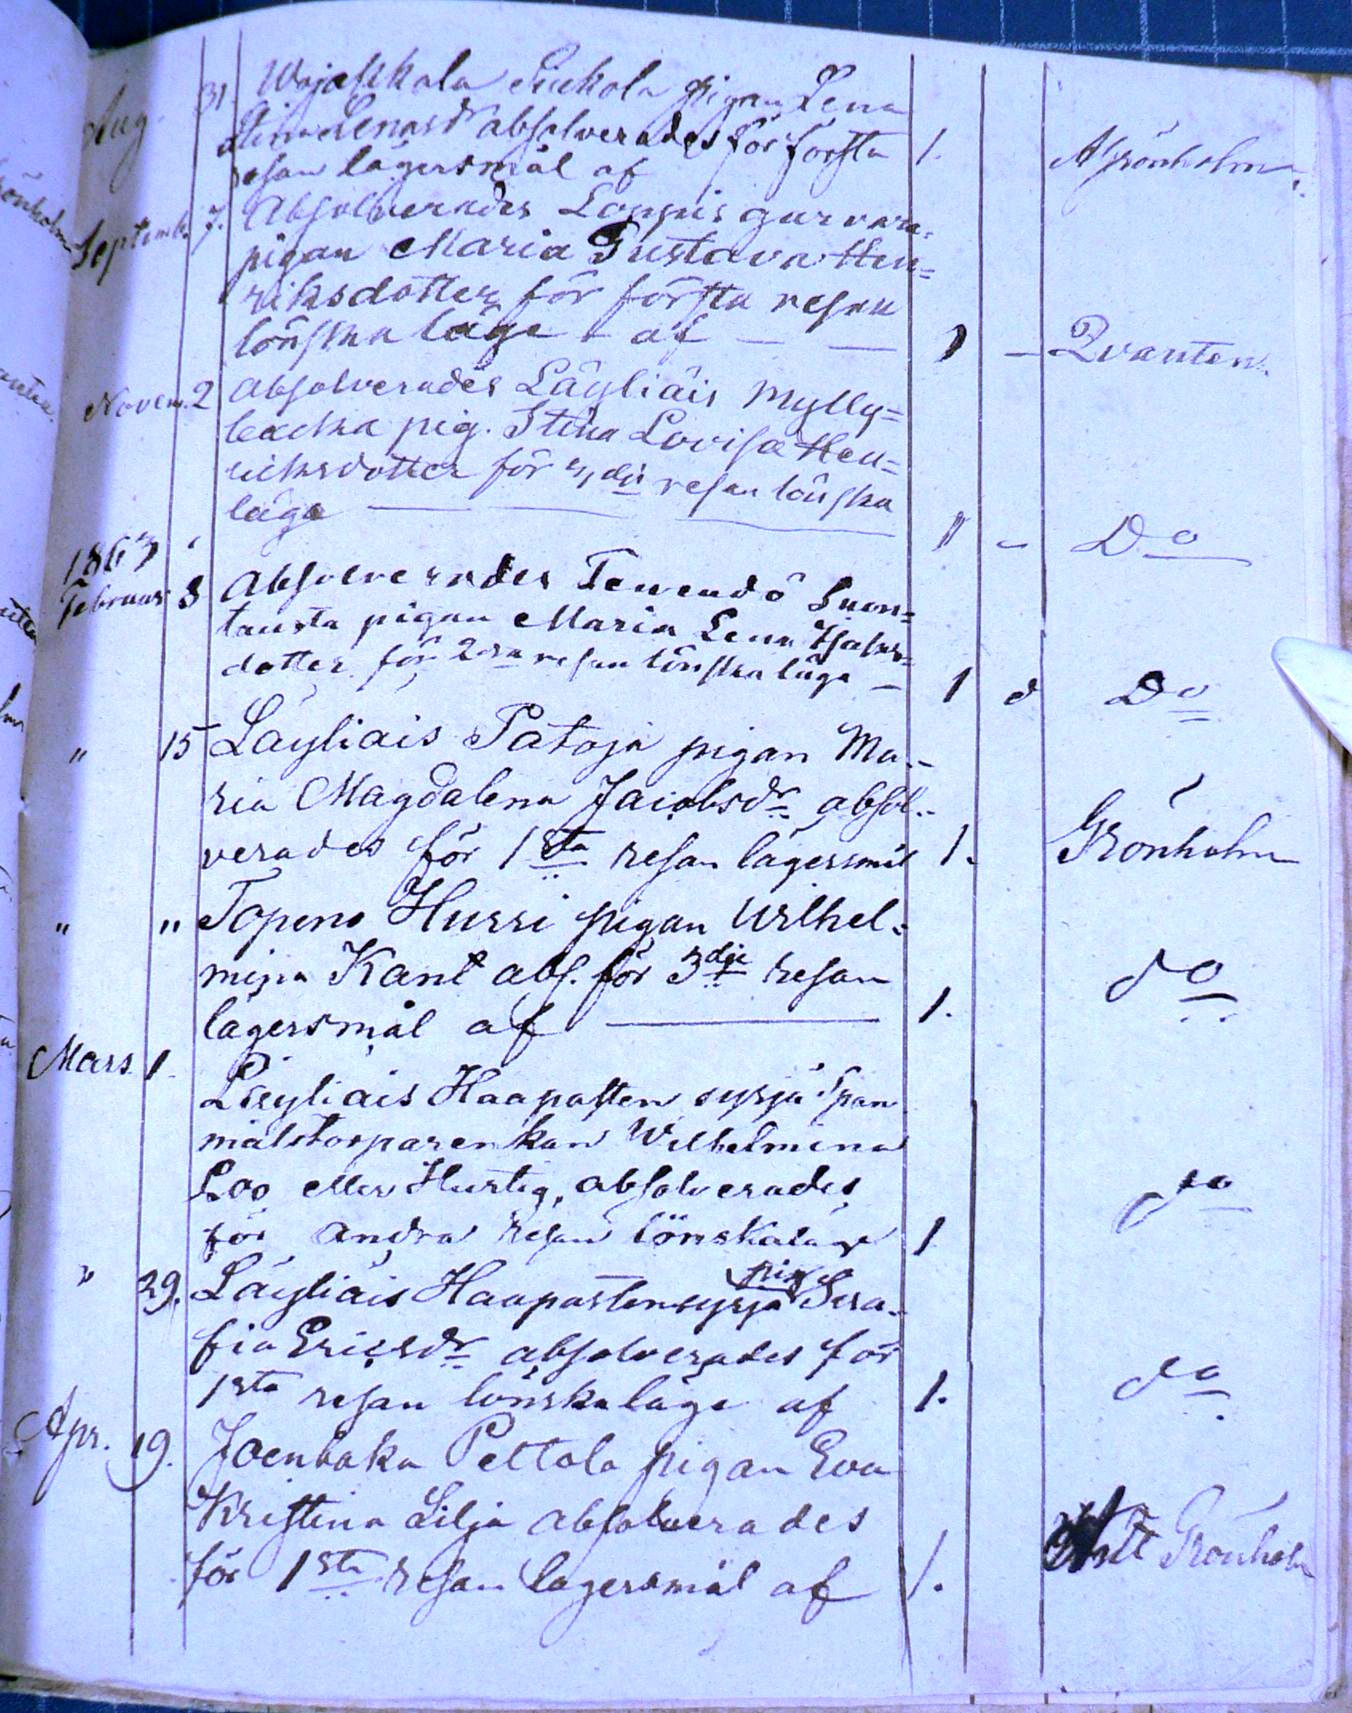 Aug. 31. Wojaskala pigan Lena
Stina Lenasdr absolverades för första 1. A Grönholm.
resan lägersmål af
Septemb. 7. Absolverades Loppis
pigan Maria Gustava Hen=
riksdotter för första resan
lönska läge - af — — 1 — Qvanten.
Novem. 2 Absolverades Läyliäis Mylly=
backa pig. Stina Lovisa Hen=
ricksdotter för resan lönska
läge — — — 1 - Do
1863
Februar 8 Absolverades Tenendö Luon=
tausta pigan Maria Lena Isaks=
dotter för 2ra resan lönska läge — 1 Do
" 15 Läyliais Patoja pigan Ma-
ria Magdalena Jacobsdr absol-
verades för 1sta resan lägersmål 1. Grönholm
" " Topeno Hurri pigan Wilhel-
mina Kant abs. för 3dje resan do
lägersmål af — 1.
Mars 1.
Läyliais Haapasten syrjä Span
målstorparenkan Wilhelmina
Roo eller Hurtig, absolverades do
för andra resan lönskaläge 1
" 29. Läyliäis Haapastensyrjä pig Sera-
fia Ericsdr absolverades för
1sta resan lönska läge af 1. do
Apr. 19. Joenkaka Peltola pigan Eva
Kristina Lilja absolverades
för 1sta resan lägersmål af 1. Grönholm